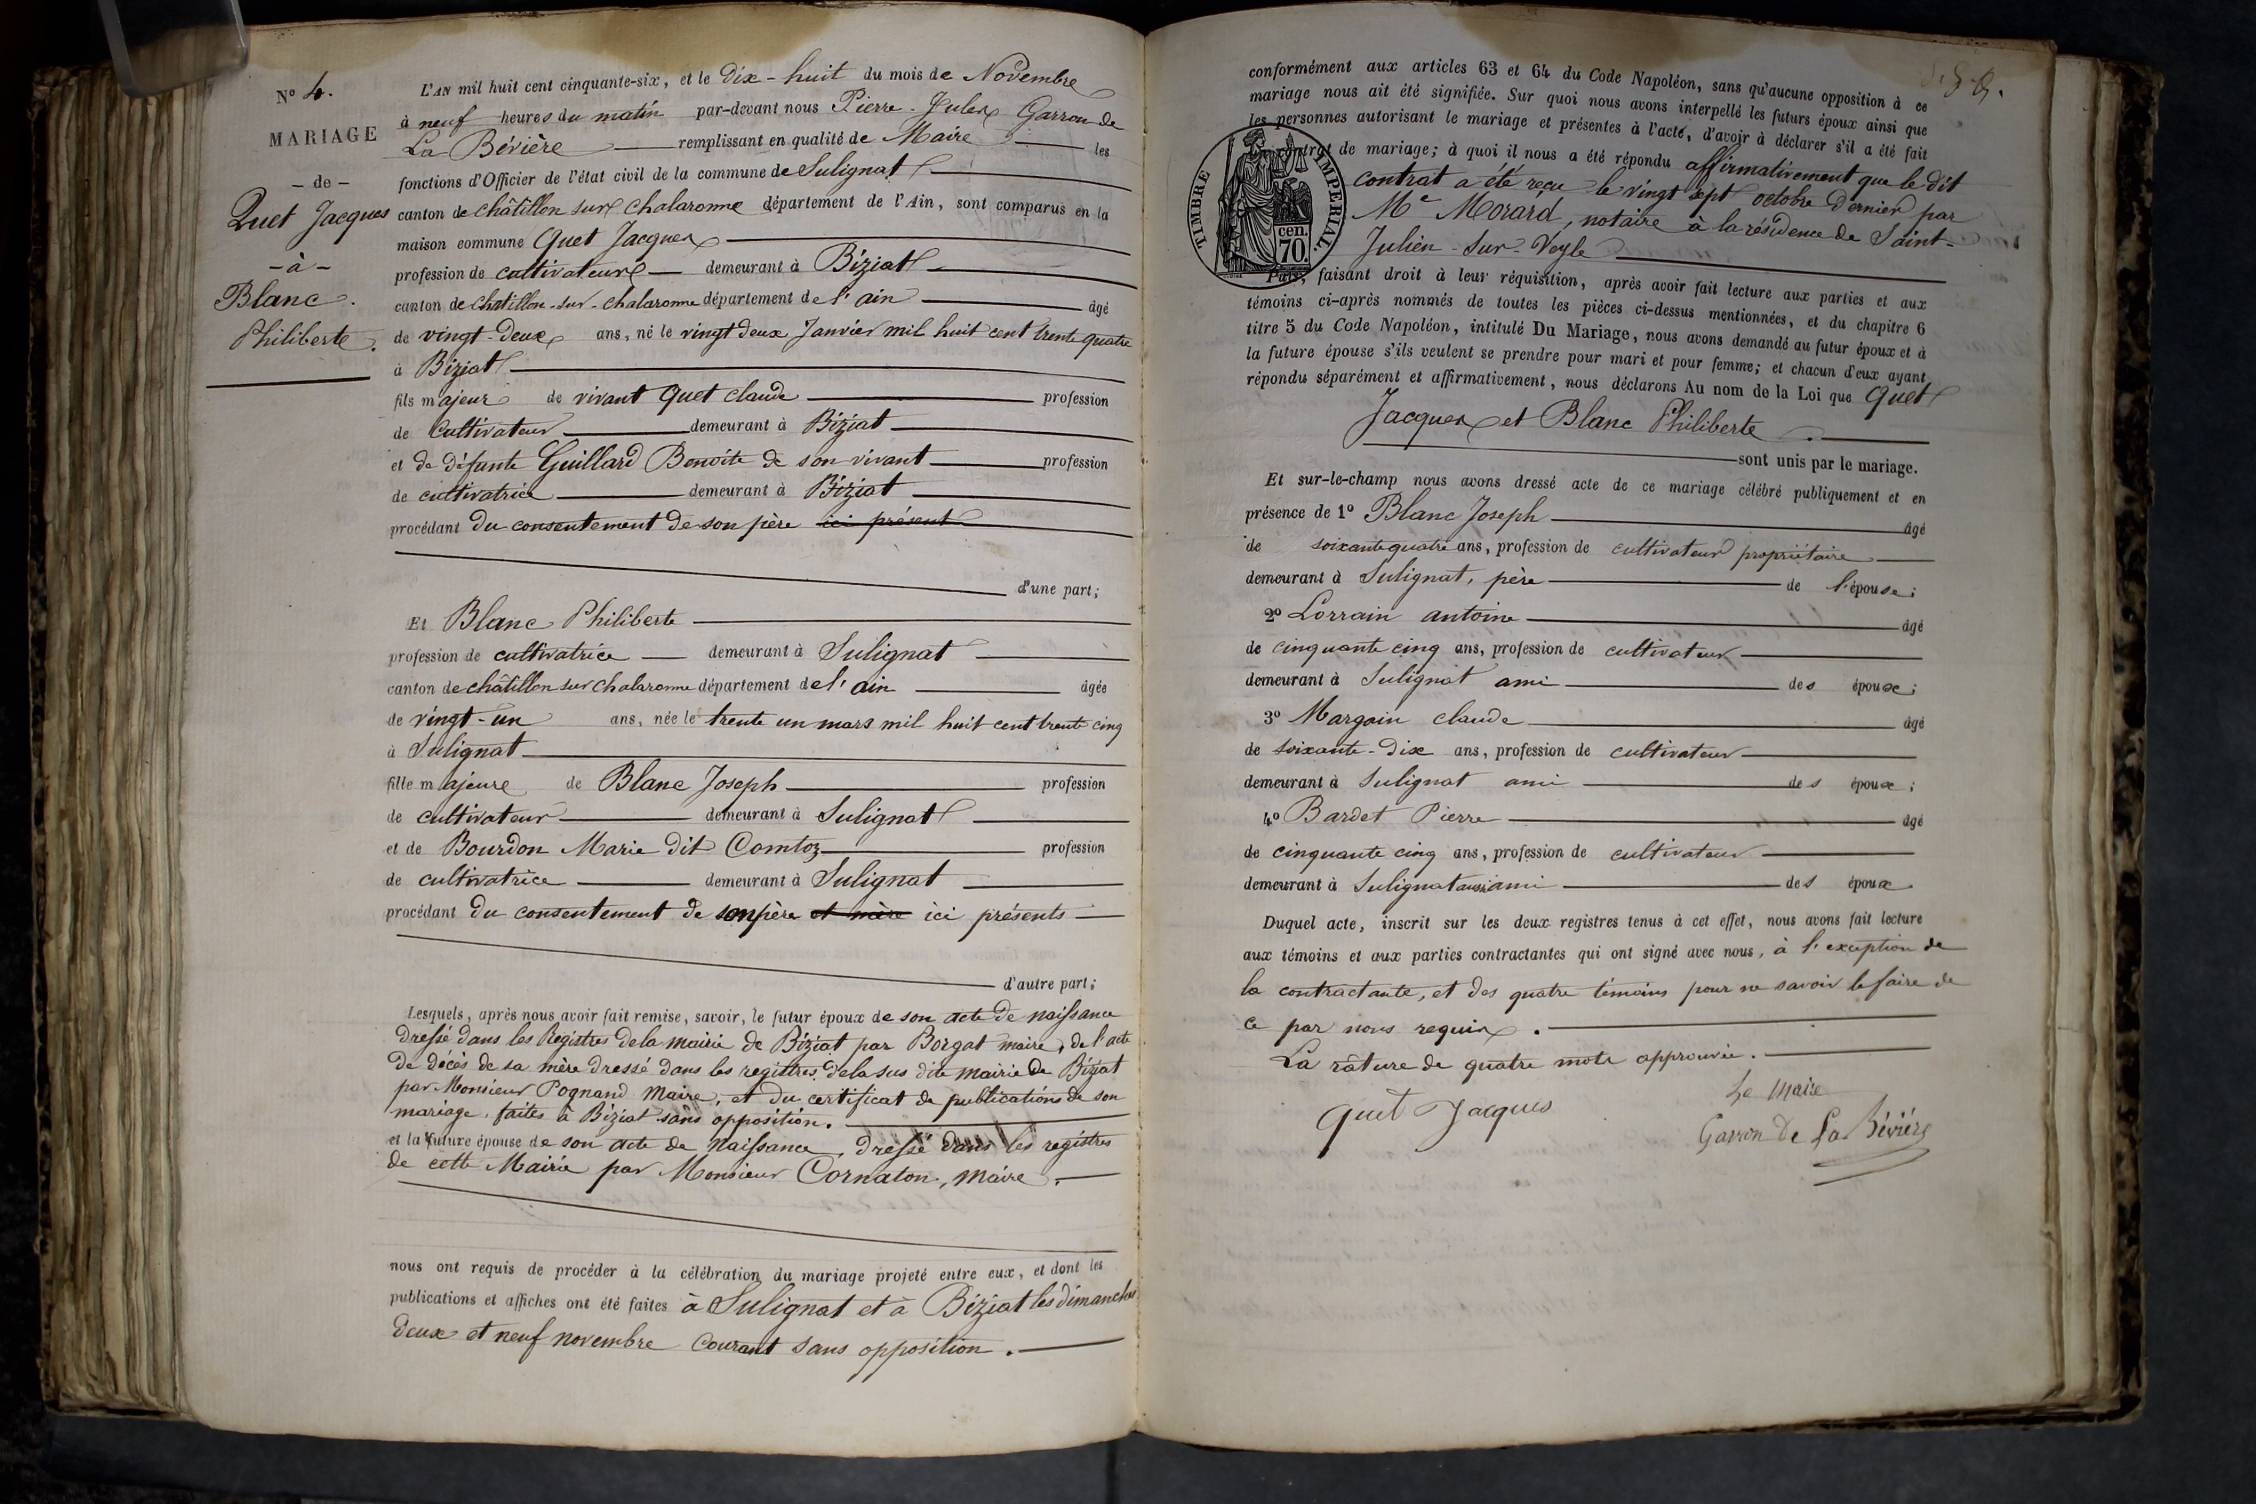 N° 4.
MARIAGE
- de -
Quet Jacques
- à -
Blanc
Philiberte.
L'AN mil huit cent cinquante-six, et le dix-huit du mois de Novembre
à neuf heures du matin par-devant nous Pierre-Jules Garron de
La Bévière remplissant en qualité de Maire les
fonctions d'Officier de l'état civil de la commune de Sulignat
canton de châtillon sur chalaronne département de l'Ain, sont comparus en la
maison commune Quet Jacques
profession de cultivateur demeurant à Biziat
canton de chatillon-sur-chalaronne département de l'ain âgé
de vingt-deux ans, né le vingt deux Janvier mil huit cent trente quatre
à Biziat
fils majeur de vivant Quet claude profession
de Cultivateur demeurant à Biziat
et de défunte Guillard Benoite de son vivant profession
de cultivatrice demeurant à Biziat
procédant du consentement de son père ici présent
d'une part;
Et Blanc Philiberte
profession de cultivatrice demeurant à Sulignat
canton de châtillon sur chalaronne département de l'ain âgée
de vingt-un ans, née le trente un mars mil huit cent trente cinq
à Sulignat
fille majeure de Blanc Joseph profession
de cultivateur demeurant à Sulignat
et de Bourdon Marie dit Comtoz profession
de cultivatrice demeurant à Sulignat
procédant du consentement de son père et mère ici présents
d'autre part;
Lesquels, après nous avoir fait remise, savoir, le futur époux de son acte de naissance
dressé dans les Registres de la mairie de Biziat par Borgat maire, de l'acte
de décès de sa mère dressé dans les registres de la sus dite mairie de Biziat
par Monsieur Pognand Maire, et du certificat de publications de son
mariage, faites à Biziat sans opposition.
et la future épouse de son acte de naissance, dressé dans les registres
de cette Mairie par Monsieur Cornaton, maire.
nous ont requis de procéder à la célébration du mariage projeté entre eux, et dont les
publications et affiches ont été faites à Sulignat et à Biziat les dimanches
deux et neuf novembre courant sans opposition.
conformément aux articles 63 et 64 du Code Napoléon, sans qu'aucune opposition à ce
mariage nous ait été signifiée. Sur quoi nous avons interpellé les futurs époux ainsi que
les personnes autorisant le mariage et présentes à l'acte, d'avoir à déclarer s'il a été fait
contrat de mariage; à quoi il nous a été répondu affirmativement que le dit
contrat a été reçu le vingt sept octobre dernier par
Me Morard, notaire à la résidence de Saint-
Julien-sur-Veyle
TIMBRE IMPERIAL
cen.
70.
Puis, faisant droit à leur réquisition, après avoir fait lecture aux parties et aux
témoins ci-après nommés de toutes les pièces ci-dessus mentionnées, et du chapitre 6
titre 5 du Code Napoléon, intitulé Du Mariage, nous avons demandé au futur époux et à
la future épouse s'ils veulent se prendre pour mari et pour femme; et chacun d'eux ayant
répondu séparément et affirmativement, nous déclarons Au nom de la Loi que Quet
Jacques et Blanc Philiberte.
sont unis par le mariage.
Et sur-le-champ nous avons dressé acte de ce mariage célébré publiquement et en
présence de 1° Blanc Joseph âgé
de soixante quatre ans, profession de cultivateur propriétaire
demeurant à Sulignat, père de l'épouse;
2° Lorrain antoine âgé
de cinquante cinq ans, profession de cultivateur
demeurant à Sulignat ami des époux;
3° Margain claude âgé
de soixante-dix ans, profession de cultivateur
demeurant à Sulignat ami des époux;
4° Bardet Pierre âgé
de cinquante cinq ans, profession de cultivateur
demeurant à Sulignat aussi ami des époux
Duquel acte, inscrit sur les deux registres tenus à cet effet, nous avons fait lecture
aux témoins et aux parties contractantes qui ont signé avec nous, à l'exception de
la contractante, et des quatre témoins pour ne savoir le faire de
ce par nous requis.
La râture de quatre mots approuvée.
Le Maire
quet Jacques
Garron de La Bévière